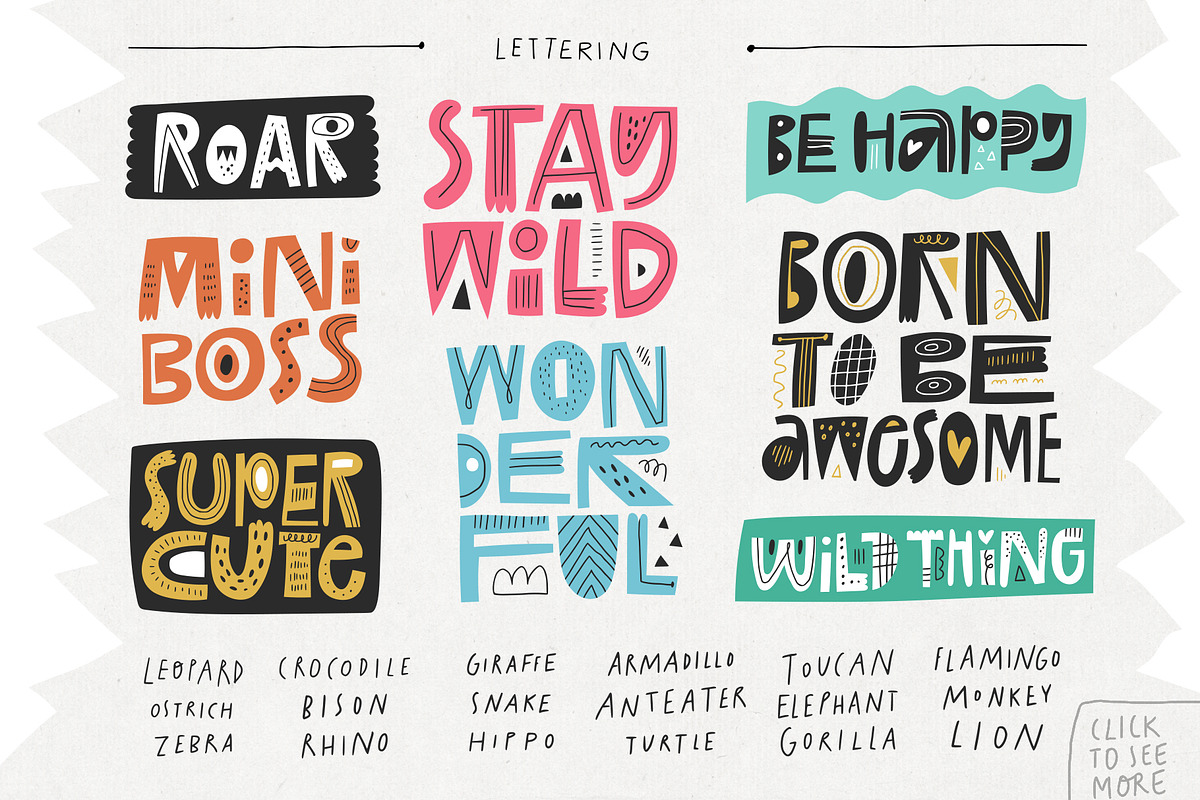 LETTERING
ROAR
MiNi
BOSS
SUPER
CUTe
STAY
WiLD
WON
DER
FUL
BE HaPPY
BORN
TO BE
aWeSOME
WiLD THiNG
LEOPARD
OSTRICH
ZEBRA
CROCODILE
BISON
RHINO
GIRAFFE
SNAKE
HIPPO
ARMADILLO
ANTEATER
TURTLE
TOUCAN
ELEPHANT
GORILLA
FLAMINGO
MONKEY
LION
CLICK
TO SEE
MORE